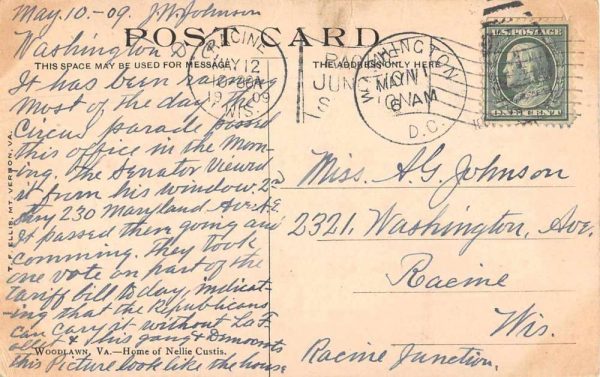 May, 10-09. J. W. Johnson
Washington D.C.
POST CARD
THIS SPACE MAY BE USED FOR MESSAGE
THE ADDRESS ONLY HERE
RACINE
MAY 12
1909
WIS.
JUN
WASHINGTON
MAY 11
AM
D.C.
U.S. POSTAGE
ONE CENT
It has been raining
most of the day. The
Circus parade passed
this office in the Morn-
ing. The Senator Viewed
it from his window, 2nd
story 230 Maryland Ave. N.E.
It passed then going and
comming. They took
one vote on part of the
tariff bill to day, indicat-
ing that the Republicans
can cary it without LaF
ollet & his gang & Democrats
this Picture look like the house
Miss. A. G. Johnson
2321, Washington, Ave.
Racine
Wis.
Racine Junction.
T. F. ELLIS, MT. VERNON, VA.
WOODLAWN, VA.—Home of Nellie Custis.